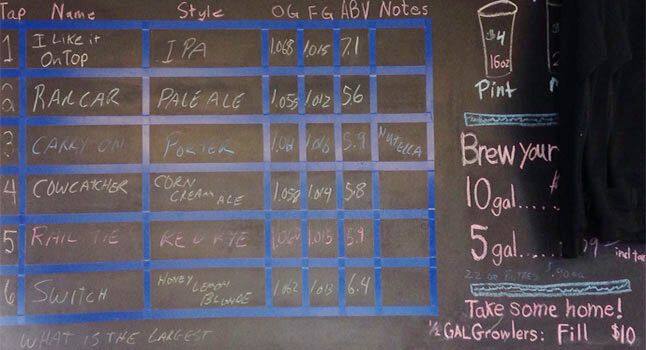 Tap Name Style OG FG ABV Notes
1 I Like it OnTop IPA 1.068 1.015 7.1
2 RAILCAR PALE ALE 1.055 1.012 5.6
3 CARRY ON PORTER 5.9 NUTELLA
4 COWCATCHER CORN CREAM ALE 1.058 1.014 5.8
5 RAIL TIE RED RYE 1.015 5.9
6 SWITCH HONEY LEMON BLONDE 1.062 1.013 6.4
WHAT IS THE LARGEST
$4
16oz
Pint
Brew Your
10 gal.....
5 gal.....
22 oz
Take some home!
1/2 GAL Growlers: Fill $10